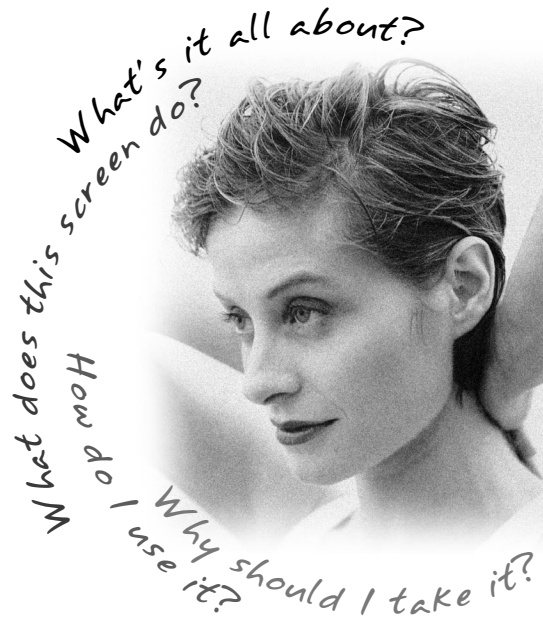 What's it all about?
What does this screen do?
How do I use it?
Why should I take it?